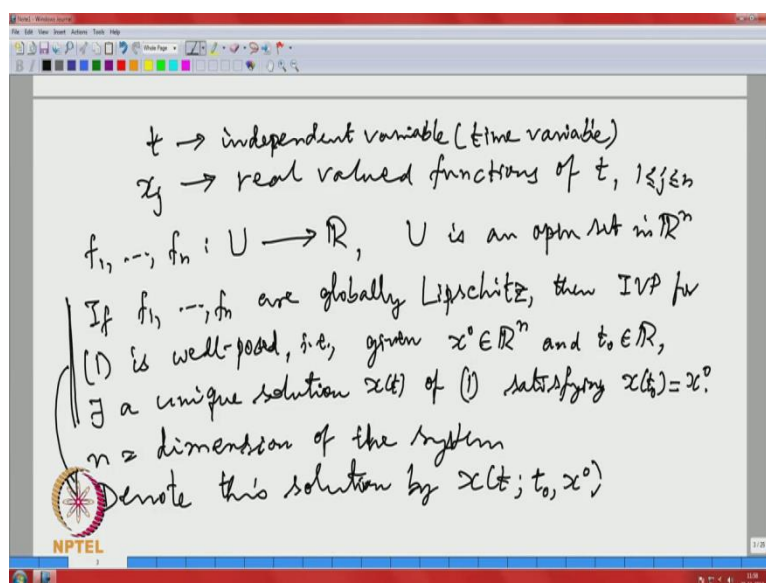 Note1 - Windows Journal
File Edit View Insert Actions Tools Help
Whole Page
B I
t → independent variable (time variable)
x_j → real valued functions of t, 1≤j≤n
f_1, ..., f_n : U → ℝ, U is an open set in ℝ^n
If f_1, ..., f_n are globally Lipschitz, then IVP for
(1) is well-posed, i.e., given x^0 ∈ ℝ^n and t_0 ∈ ℝ,
∃ a unique solution x(t) of (1) satisfying x(t_0) = x^0.
n = dimension of the system
Denote this solution by x(t; t_0, x^0)
NPTEL
3
3/25
11:55